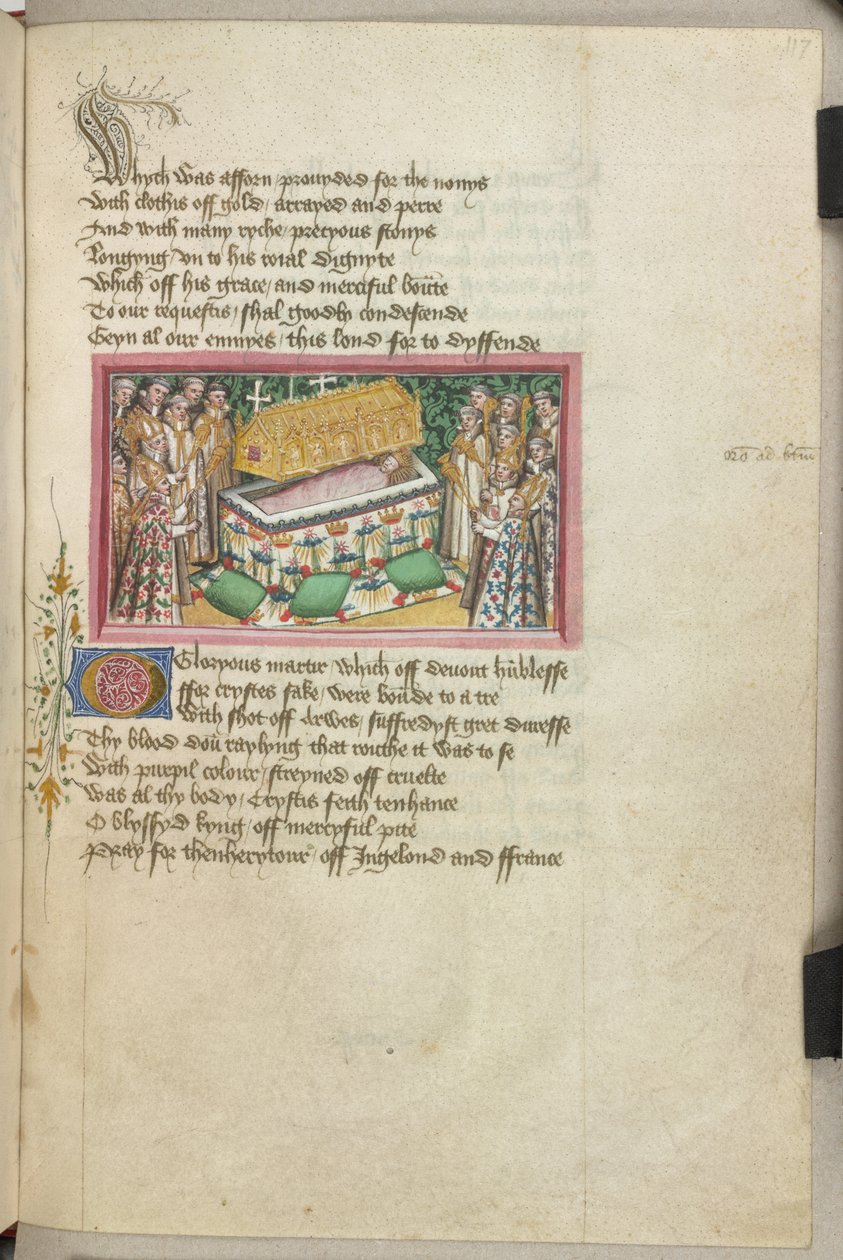 117
Whych was afforn / provyded for the nonys
With clothis off gold / arrayed and perre
And with many ryche / precyous stonys
Longyng / vn to his roial dignyte
Which off his grace / and merciful bou͞te
To our requestis / shal goodly condescende
Geyn al our enmyes / this lond for to dyffende
oro͞ ad
O Gloryous martir / which off devout hu͞blesse
ffor crystes sake / were bou͞de to a tre
With shot off arwes / suffredyst gret duresse
Thy blood dou͞ raylyng that routhe it was to se
With purpil colour / streyned off cruelte
Was al thy body / Crystis feith tenhance
O blyssyd kyng / off mercyful pite
Pray for thenherytour / off Ingelond and ffrance